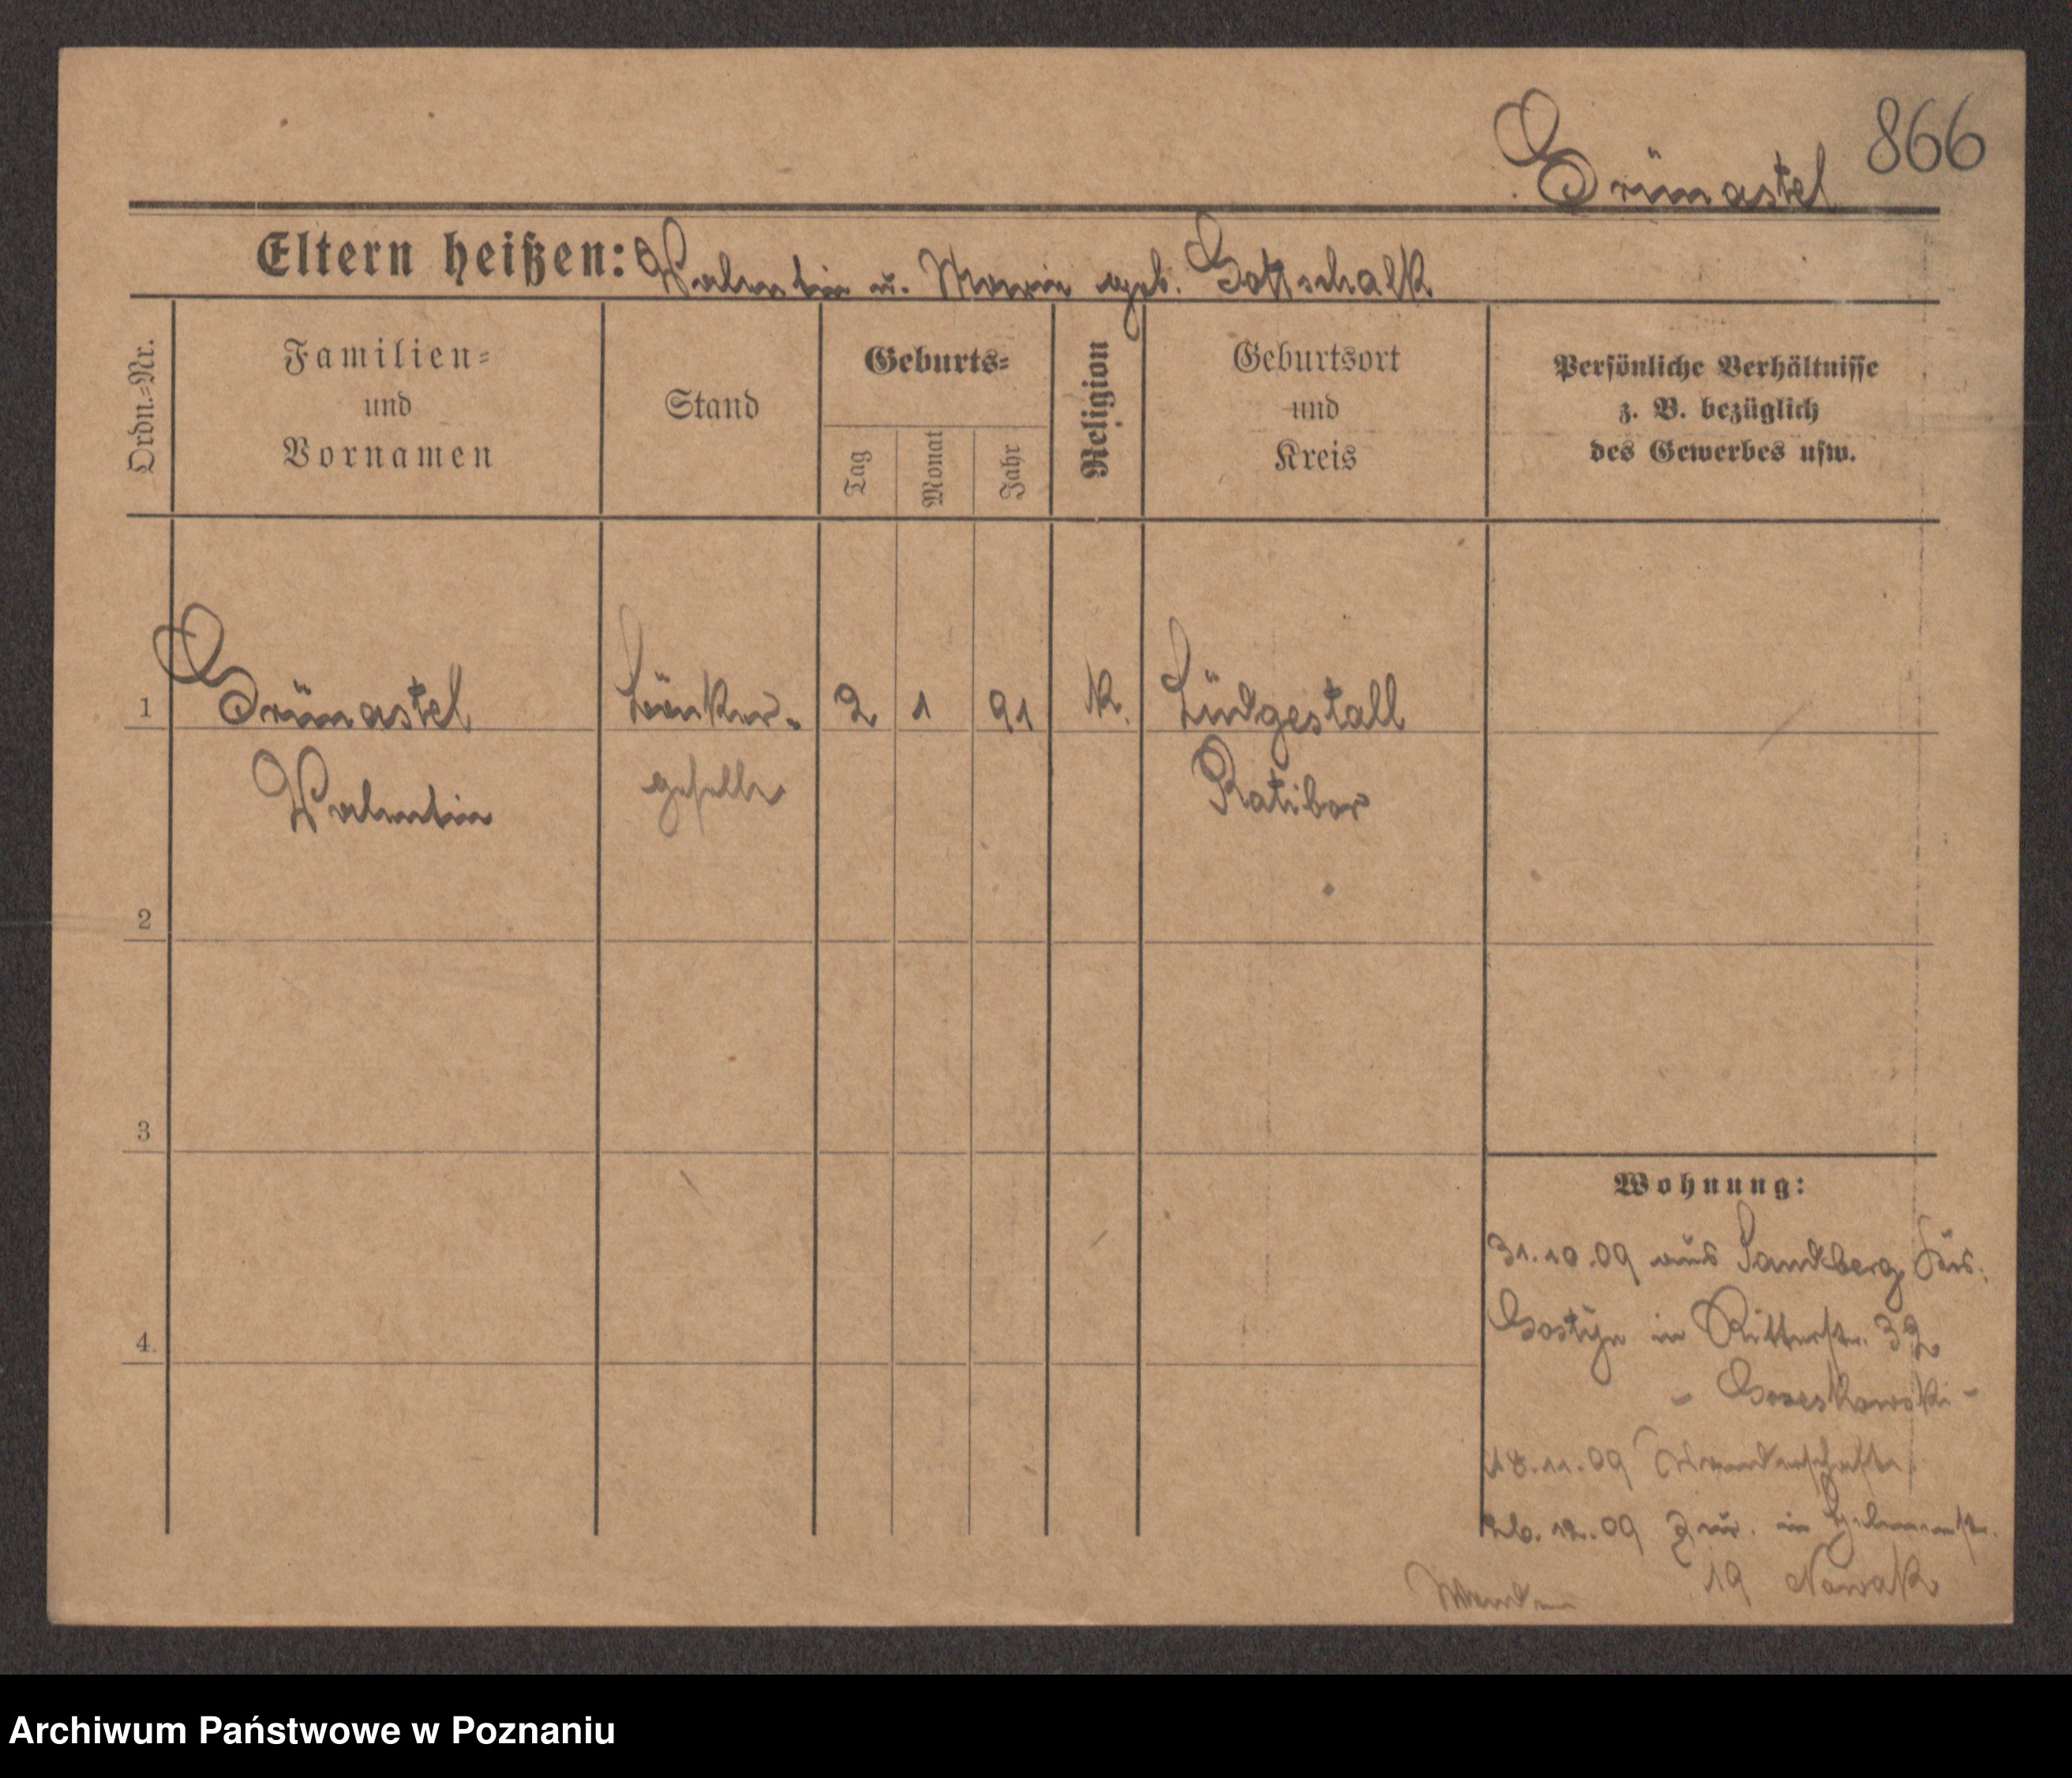 866
Grünastel
Eltern heißen: Valentin u. Maria geb. Gottschalk
Ordn.-Nr.
Familien-
und
Vornamen
Stand
Geburts-
Tag
Monat
Jahr
Religion
Geburtsort
und
Kreis
Persönliche Verhältnisse
z. B. bezüglich
des Gewerbes usw.
1 Grünastel 2 1 91 K.
Valentin geselle Ratibor
2
3
4
Wohnung:
31.10.09 aus Sandberg Krs.
Gostyn in Ritterstr. 32
18.11.09 Wanderschaft
26.12.09 zur. in
19 Nowak
Wenden
Archiwum Państwowe w Poznaniu